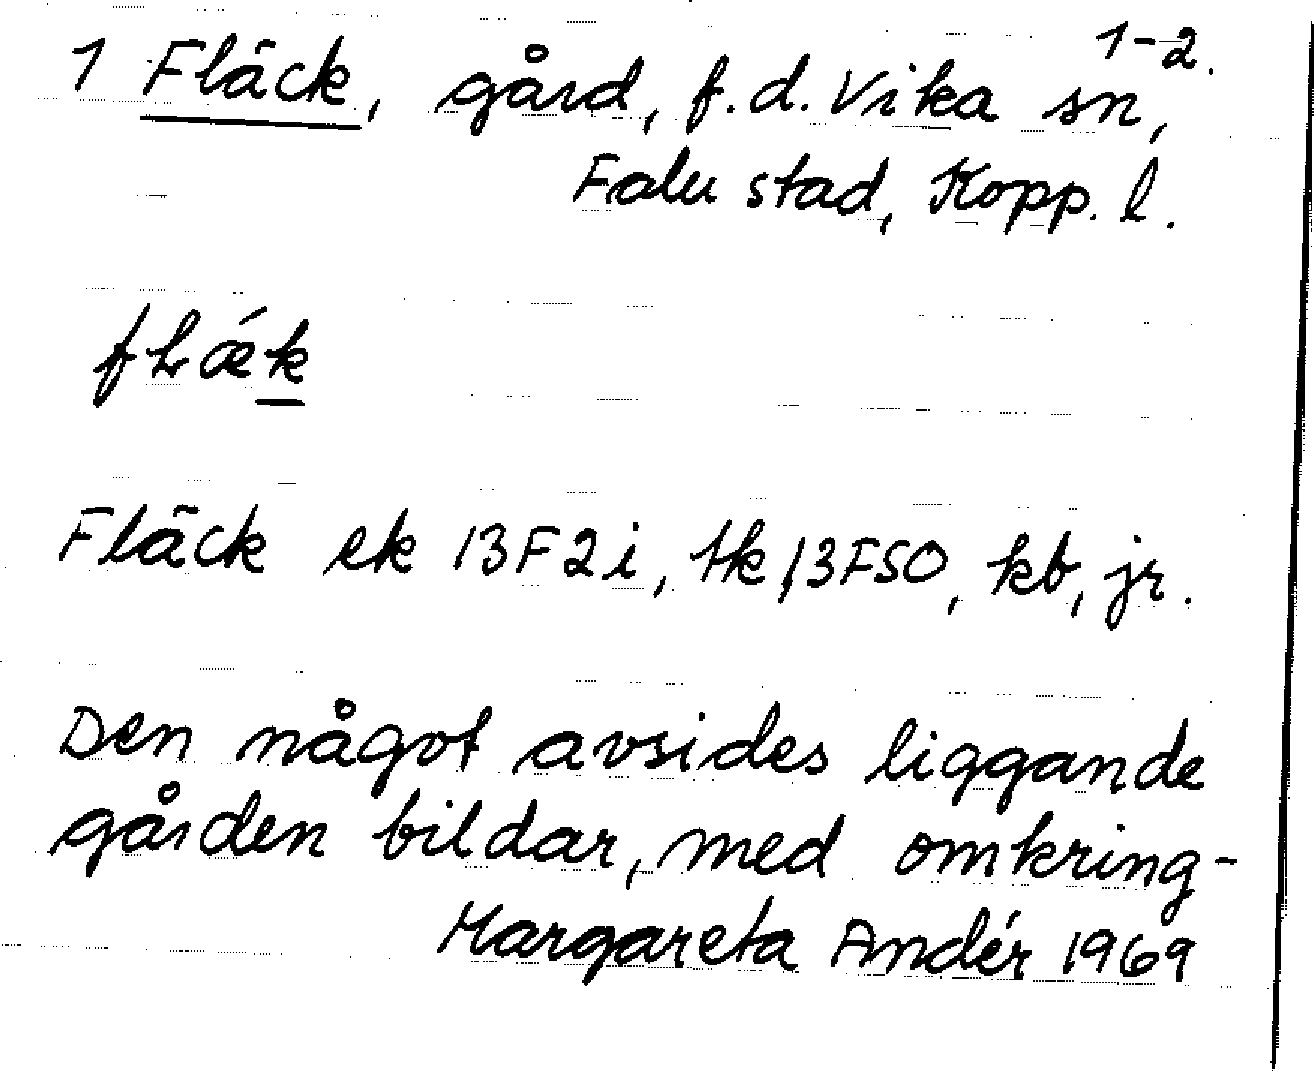 1-2.
1 Fläck, gård, f.d. Vika sn,
Falu stad, Kopp. l.
fLǽk
Fläck ek 13F2i, tk 13FSO, kb, jr.
Den något avsides liggande
gården bildar, med omkring-
Margareta Andér 1969